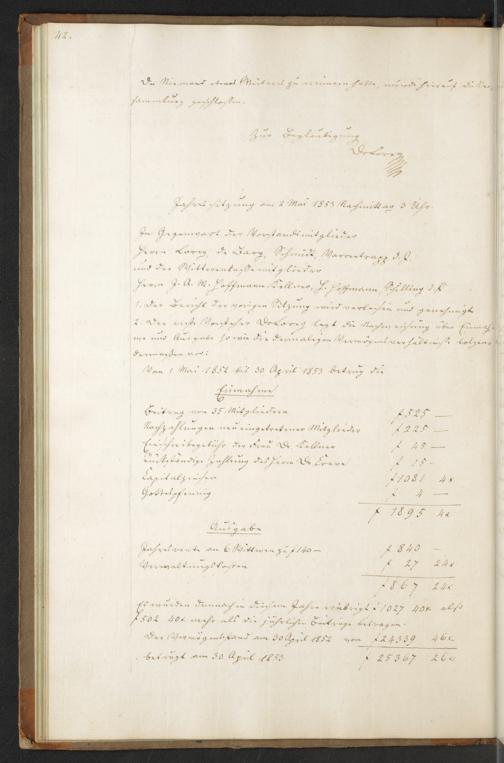 42.
Da Niemand etwas Weiteres zu erinnern hatte, wurde hierauf die
sammlung geschlossen.
Zur Beglaubigung
Dr Lorey
Jahressitzung am 2 Mai 1853 Nachmittag 3 Uhr.
In Gegenwart der Vorstandsmitglieder
Herrn Lorey, de Bary, Schmidt, Varrentrapp d. J.
und der Wittwenkassemitglieder
Herrn J. A. W. Hoffmann, Kellner, H. Hoffmann, Schilling d. J.
1. Der Bericht der vorigen Sitzung wird verlesen und genehmigt
2. Der erste Vorsteher Dr Lorey legt die Nachweisung über Einnah
me und Ausgabe sowie die dermaligen Vermögensverhältnisse folgen
dermassen vor:
Von 1 Mai 1852 bis 30 April 1853 betrug die
Einnahme
Beitrag von 35 Mitgliedern f 525 —
Nachzahlungen neu eingetretener Mitglieder f 225 —
Einschreibegebühr der Frau Dr Kellner f 45 —
Rückständige Zahlung des Herrn Dr f 15 —
Capitalzinsen f 1081 4x
Gottespfennig f 4 —
f 1895 4x
Ausgabe
Jahresrente an 6 Wittwen zu f 140 — f 840 —
Verwaltungskosten f 27 24x
f 867 24x
Es wurden demnach in diesem Jahre erübrigt f 1027 40x also
f 502 40x mehr als die jährlichen Beiträge betragen.
Der Vermögensstand am 30 April 1852 von f 24339 46x
beträgt am 30 April 1853 f 25367 26x